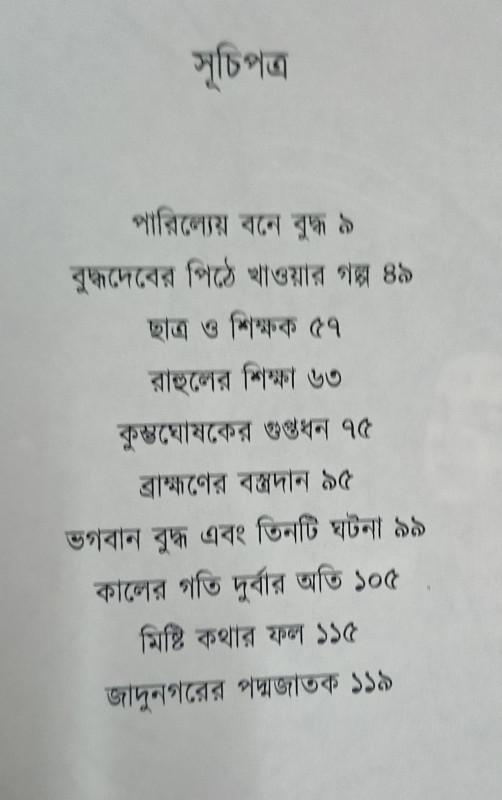 সূচিপত্র
পারিলেয্য় বনে বুদ্ধ ৯
বুদ্ধদেবের পিঠে খাওয়ার গল্প ৪৯
ছাত্র ও শিক্ষক ৫৭
রাহুলের শিক্ষা ৬৩
কুম্ভঘোষকের গুপ্তধন ৭৫
ব্রাহ্মণের বস্ত্রদান ৯৫
ভগবান বুদ্ধ এবং তিনটি ঘটনা ৯৯
কালের গতি দুর্বার অতি ১০৫
মিষ্টি কথার ফল ১১৫
জাদুনগরের পদ্মজাতক ১১৯